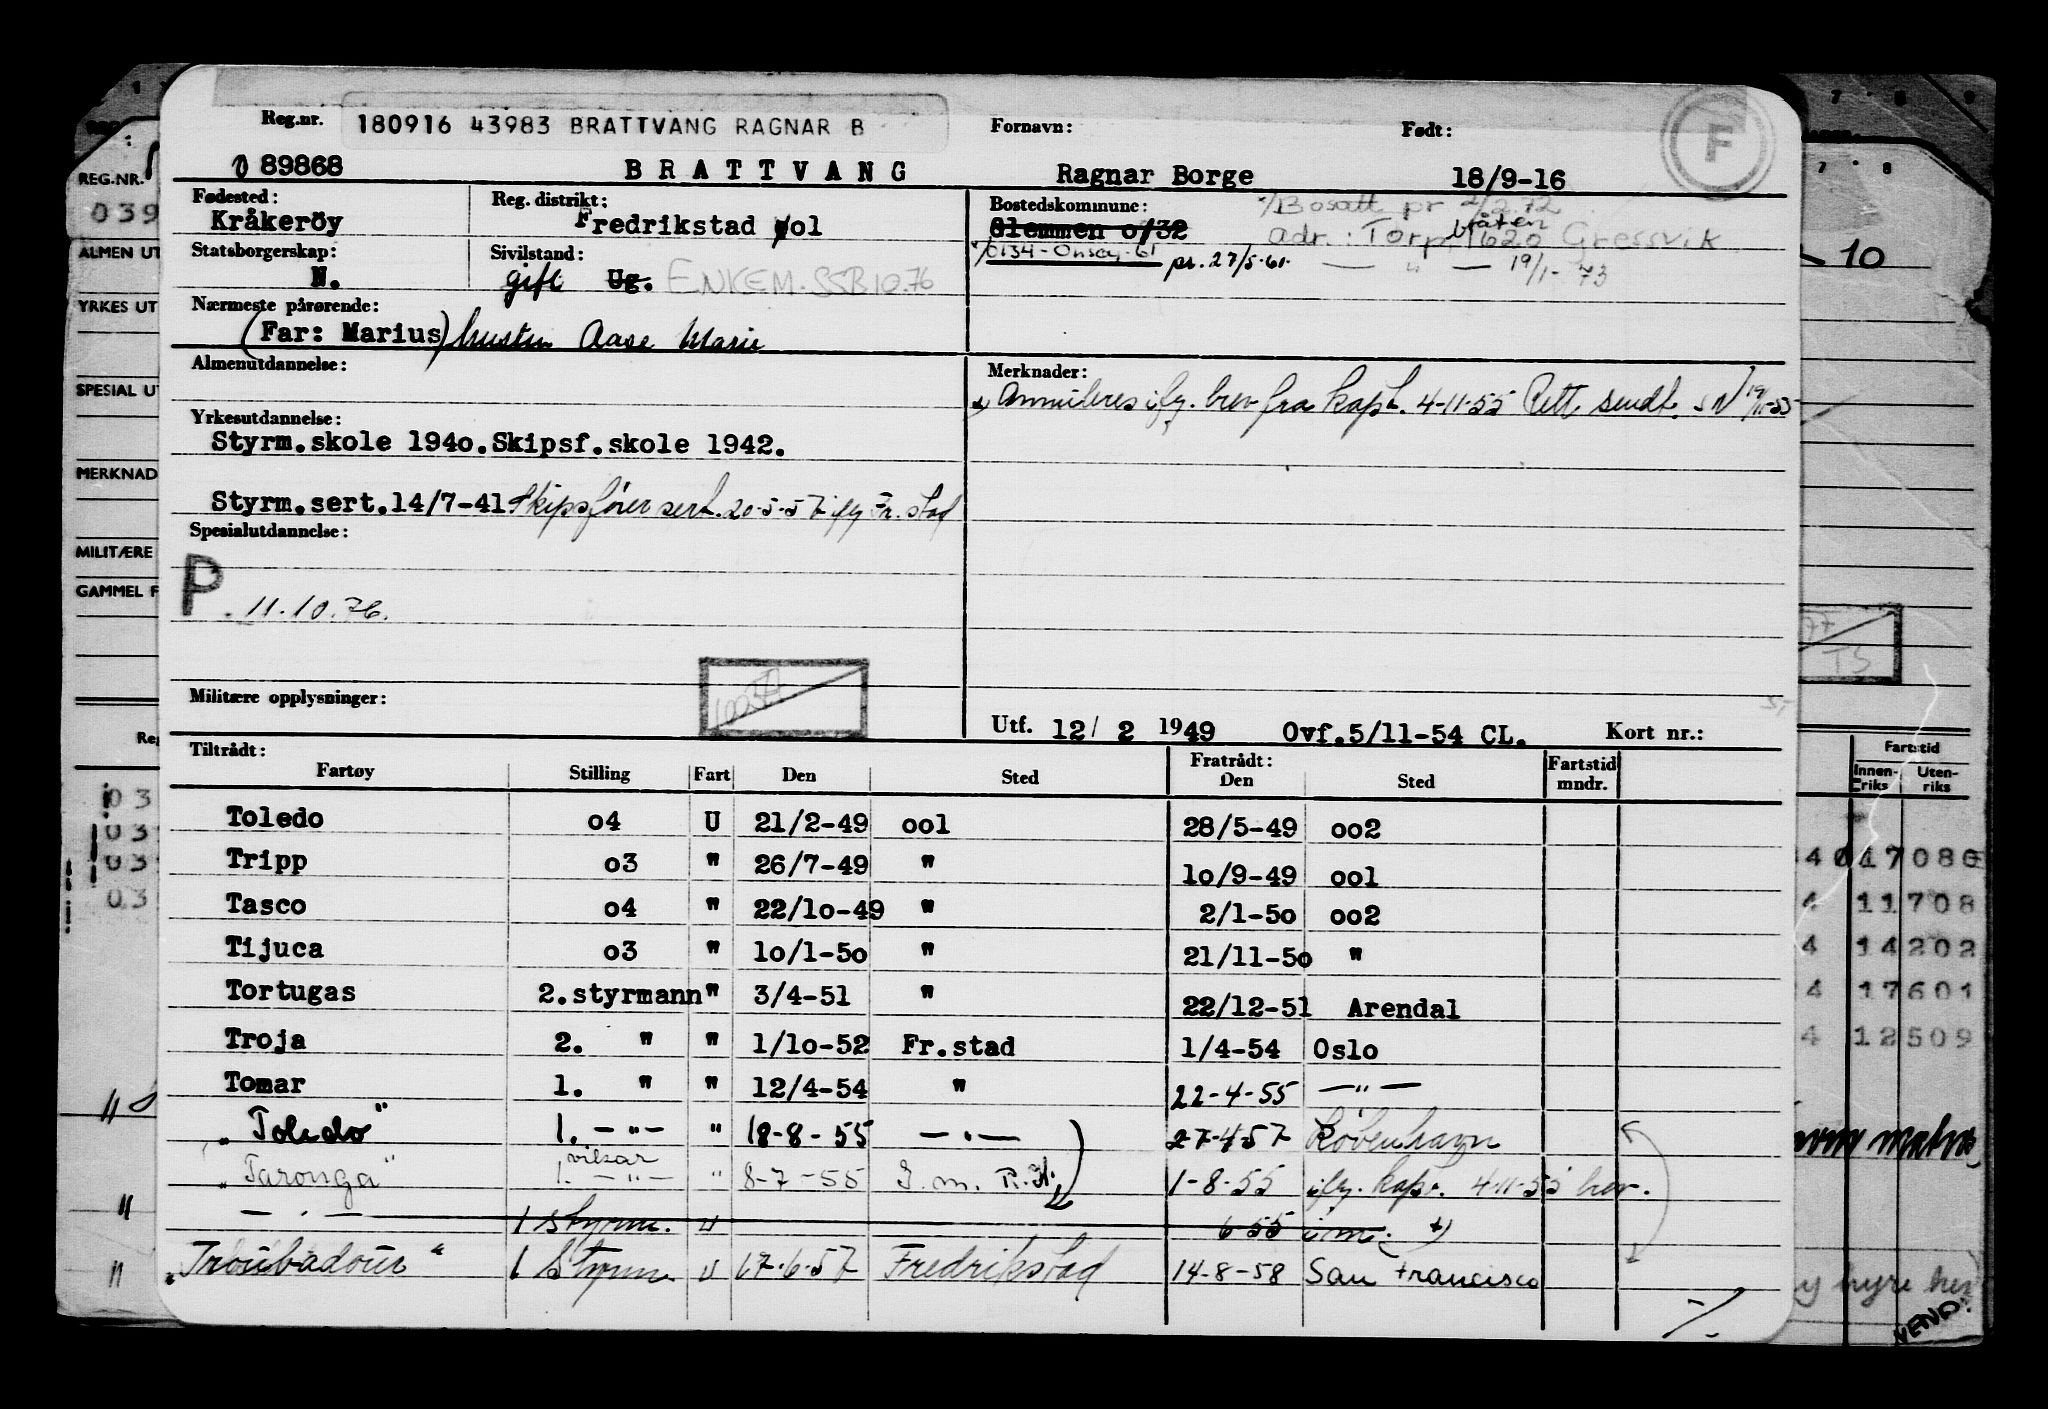 Reg.nr. 180916 43983 BRATTVANG RAGNAR B Fornavn: Født: F
089868 BRATTVANG Ragnar Borge 18/9-16
Fødested: Reg. distrikt: Bostedskommune: Bosatt pr 2/2.72
Kråkeröy Fredrikstad ool Glemmen o/32 adr.: Torpbråten 1620 Gressvik
Statsborgerskap: Sivilstand: 0134-Onsøy-61 pr. 27/5-61. — " — 19/1-73
N. gift Ug. ENKEM. SSB 10.76
Nærmeste pårørende:
(Far: Marius) hustru Aase Marie
Almenutdannelse: Merknader:
Annulleres ifg. brev fra kapt. 4-11-55 Rett. sendt.
Yrkesutdannelse:
Styrm.skole 194o.Skipsf.skole 1942.
Styrm.sert.14/7-41 Skipsfører sert. 20-5-57 ifg Fr.stad
Spesialutdannelse:
P. 11.10.76.
Militære opplysninger:
Utf. 12/ 2 1949 Ovf.5/11-54 CL. Kort nr.:
Tiltrådt: Fratrådt: Fartstid
Fartøy Stilling Fart Den Sted Den Sted mndr.
Toledo o4 U 21/2-49 ool 28/5-49 oo2
Tripp o3 " 26/7-49 " lo/9-49 ool
Tasco o4 " 22/lo-49 " 2/1-5o oo2
Tijuca o3 " lo/1-5o " 21/11-5o "
Tortugas 2.styrmann " 3/4-51 " 22/12-51 Arendal
Troja 2. " " 1/lo-52 Fr.stad 1/4-54 Oslo
Tomar 1. " " 12/4-54 " 22-4-55 — " —
"Toledo" 1. — " — " 18-8-55 — " — 27-4-57 København
"Taronga" 1. vikar — " — " 8-7-55 1-8-55 ifg. kapt. 4-11-55 brev.
— " — 1 styrm. u 6-55
"Troubadour" 1 Styrm. u 17-6-57 Fredrikstad 14-8-58 San Francisco
REG.NR.
039
ALMEN UT
YRKES UT
SPESIAL UT
MERKNAD
MILITÆRE
GAMMEL F
Reg
03
03
03
03
10
TS
Fartstid
Innen- Uten-
riks riks
17080
4 11708
4 14202
4 17601
4 12509
VEND: